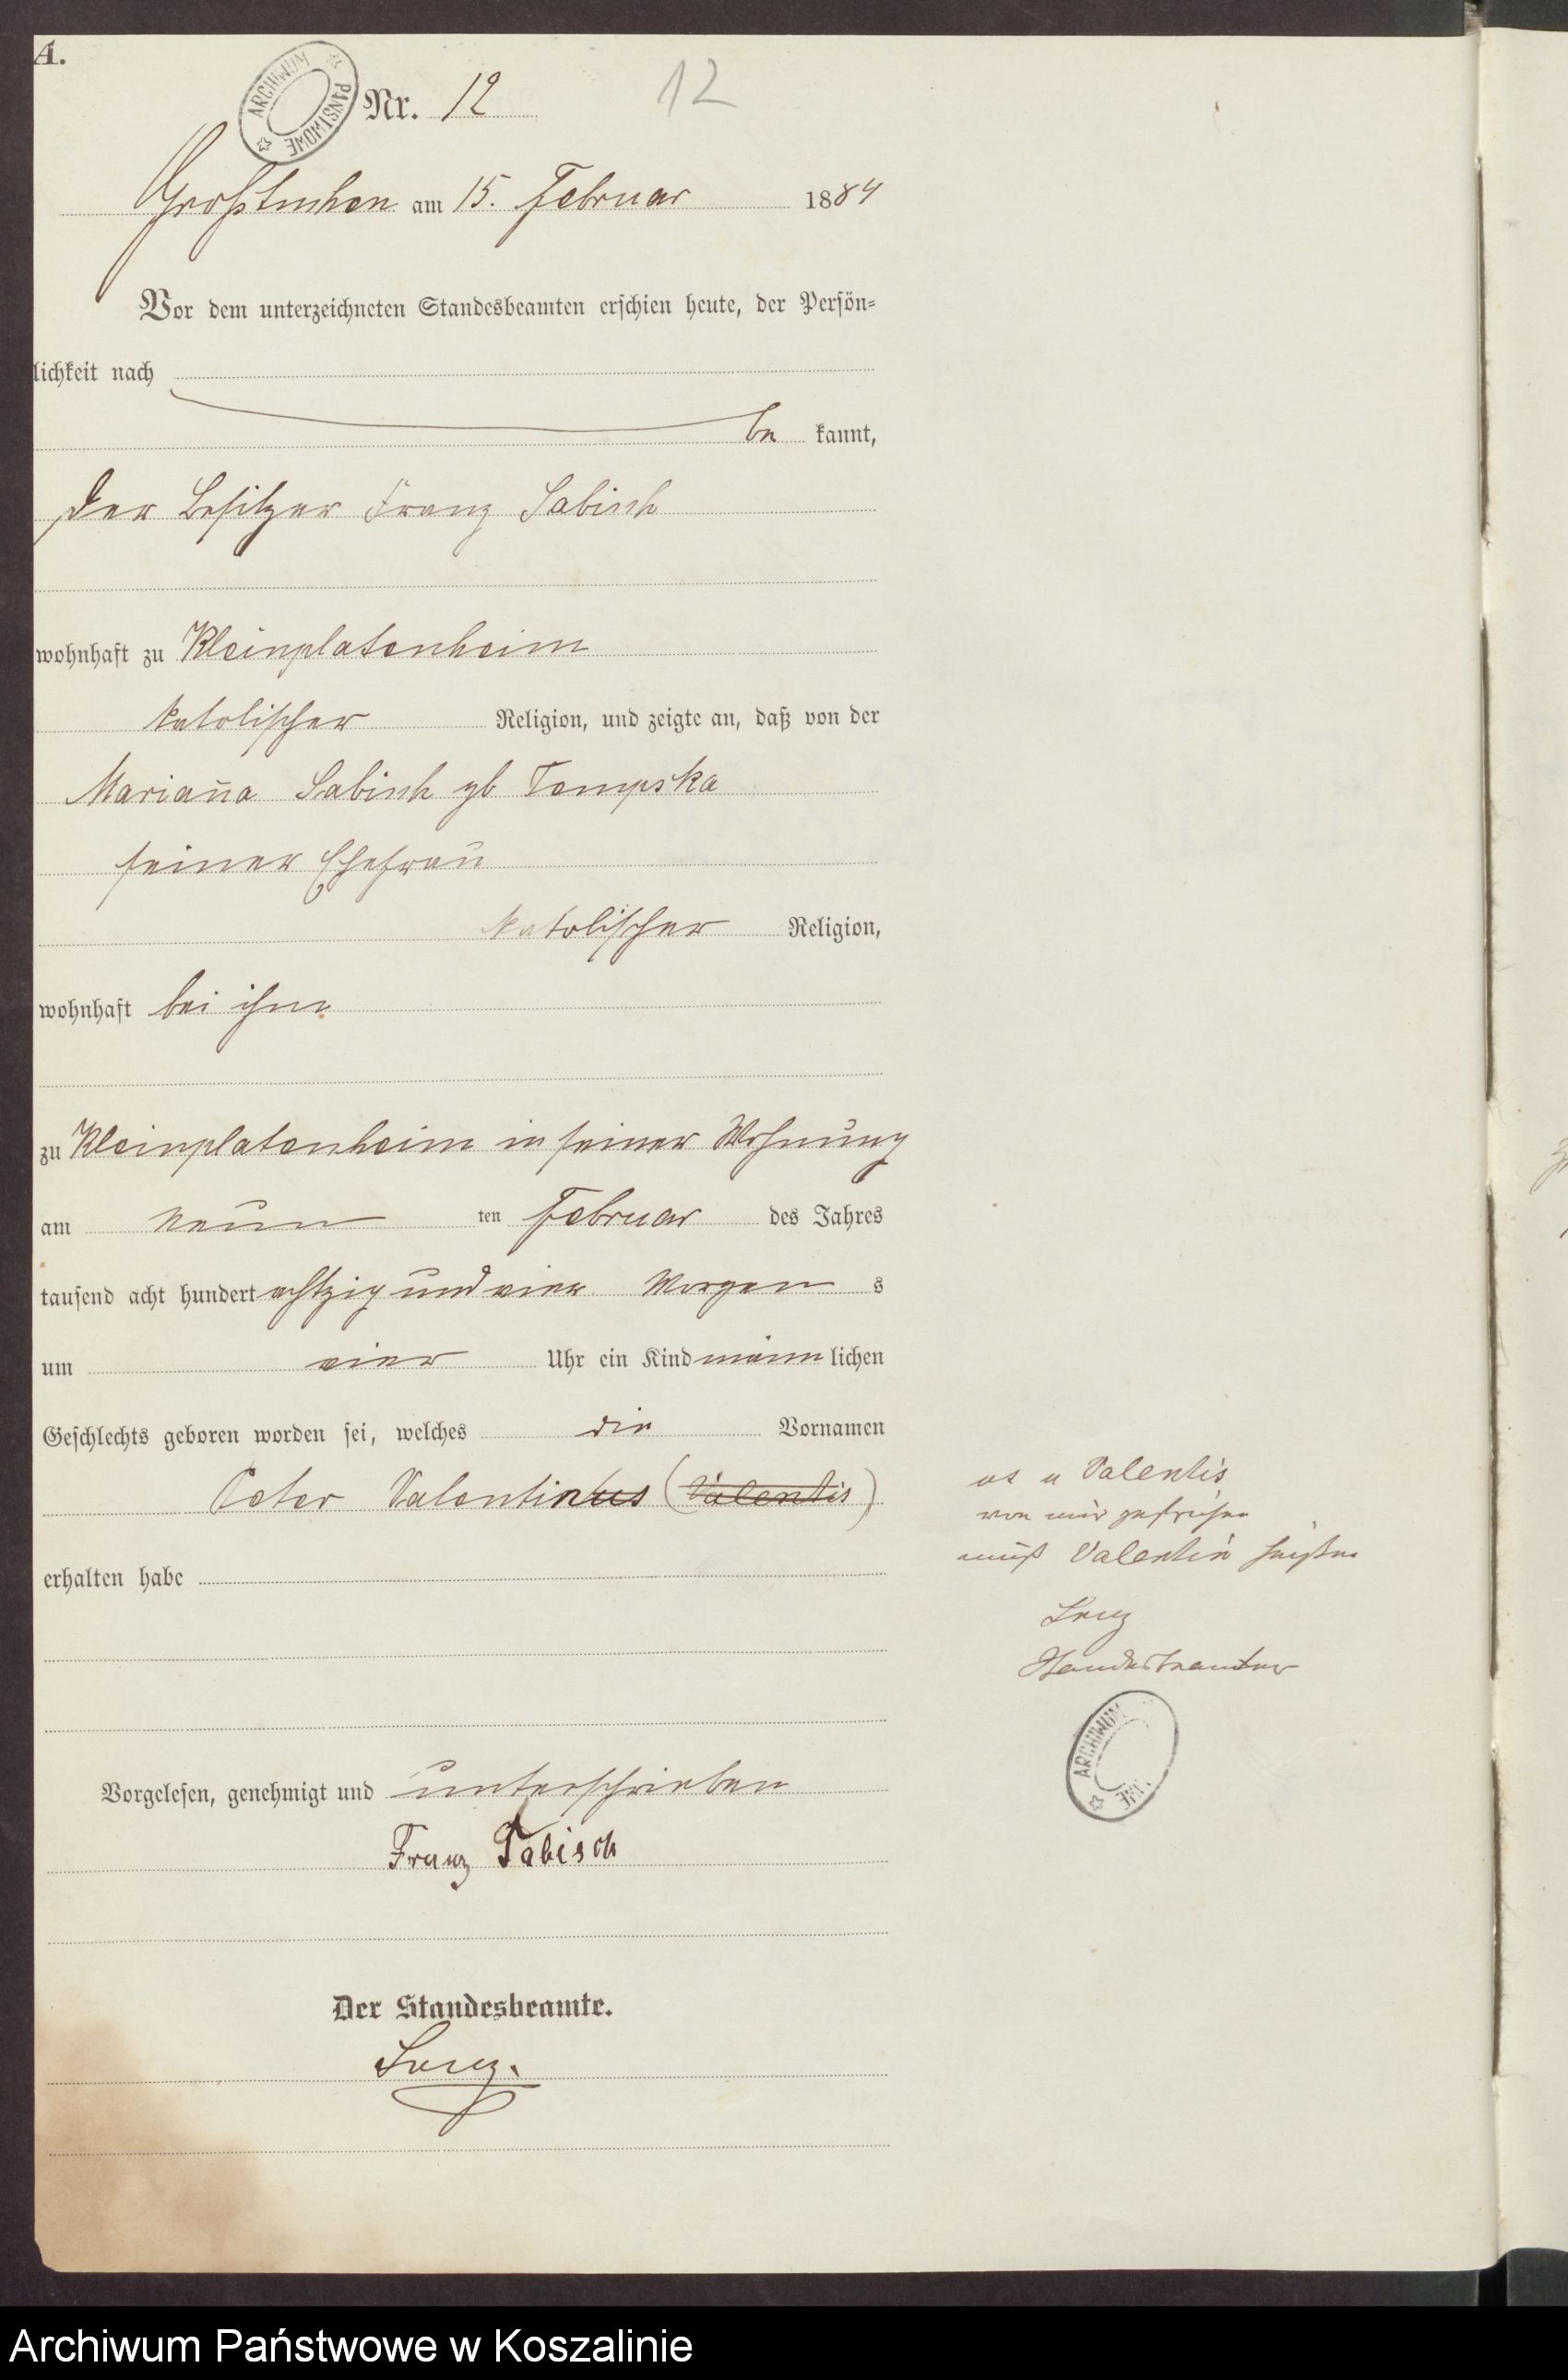 A.
ARCHIWUM PAŃSTWOWE
Nr. 12
12
Großtuchen am 15. Februar 1884
Vor dem unterzeichneten Standesbeamten erschien heute, der Persön=
lichkeit nach
be kannt,
der Besitzer Franz Sabisch
wohnhaft zu Kleinplatenheim
katolischer Religion, und zeigte an, daß von der
Marian̄a Sabisch gb Tempska
seiner Ehefrau
katolischer Religion,
wohnhaft bei ihm
zu Kleinplatenheim in seiner Wohnung
am neun ten Februar des Jahres
tausend acht hundert achtzig und vier Morgen s
um vier Uhr ein Kind männ lichen
Geschlechts geboren worden sei, welches die Vornamen
Peter Valentinus (Valentis)
erhalten habe
us u Valentis
von mir gestrichen
muß Valentin heißen
Lenz
Standesbeamter
ARCHIWUM
Vorgelesen, genehmigt und unterschrieben
Franz Sabisch
Der Standesbeamte.
Lenz.
Archiwum Państwowe w Koszalinie